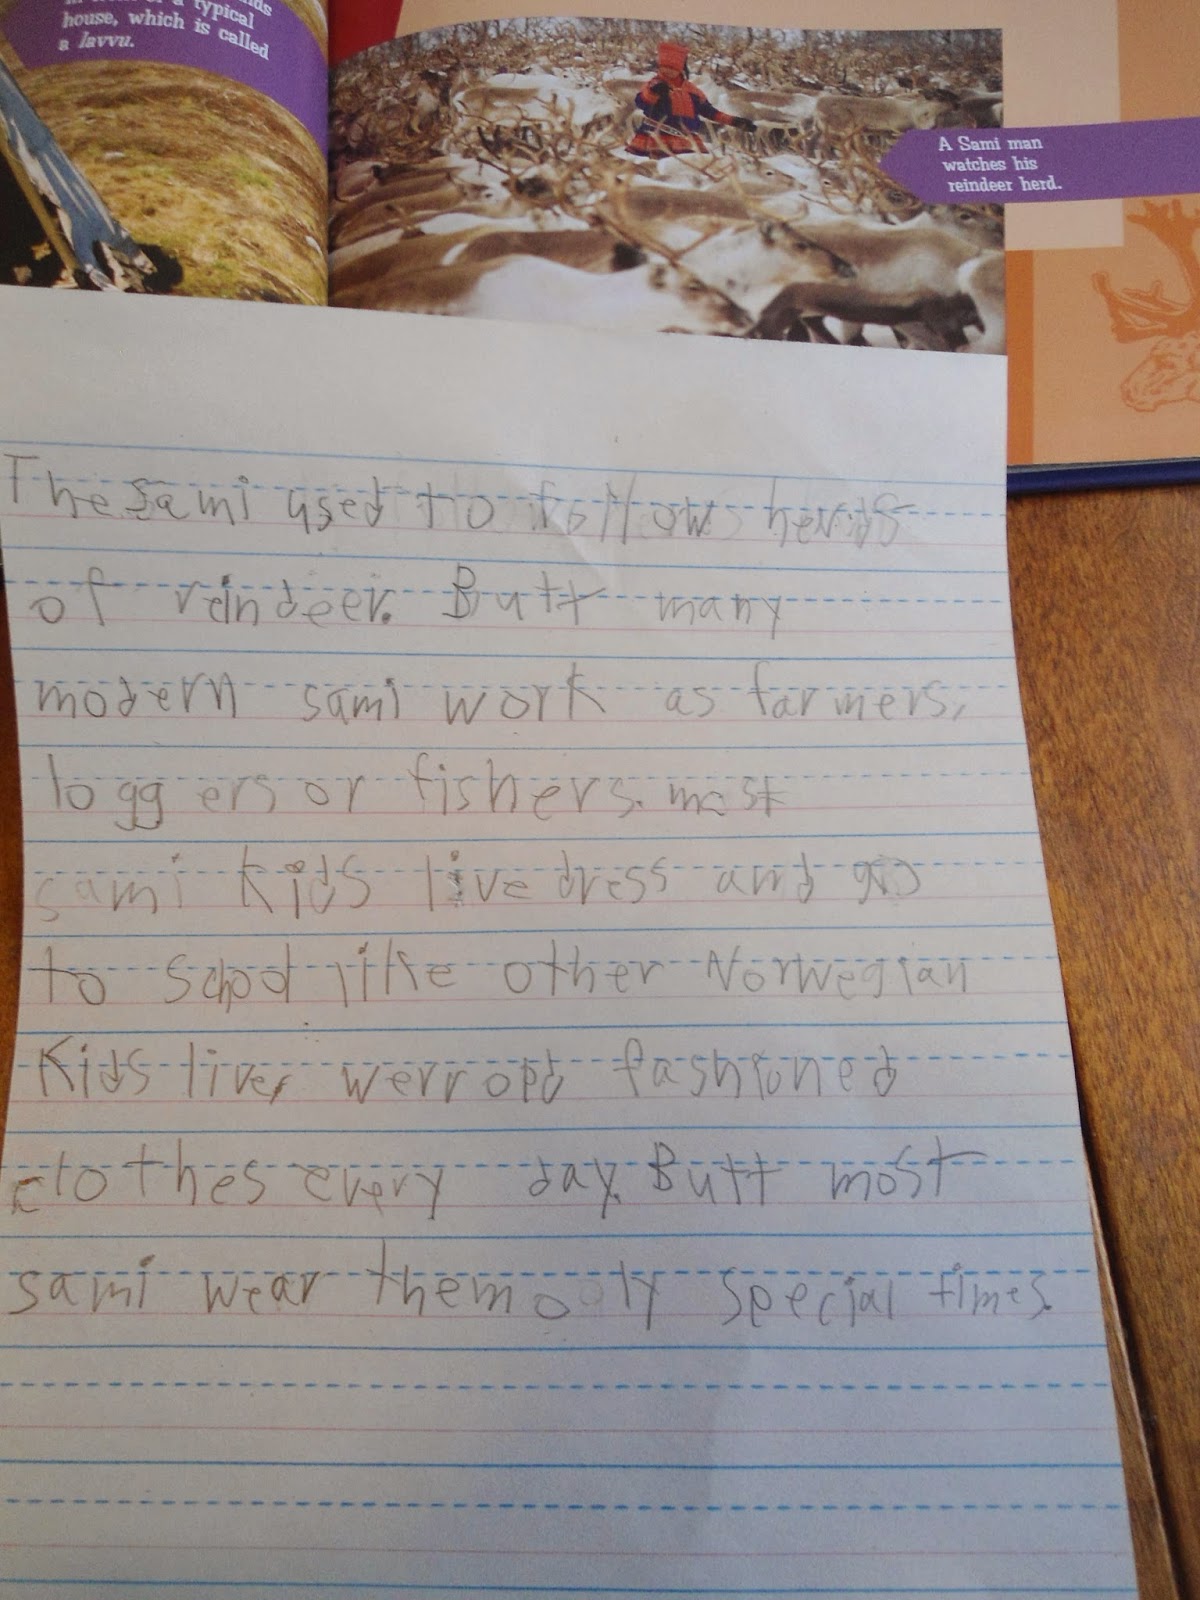 house, which is called
a lavvu.
A Sami man
watches his
reindeer herd.
The sami used to follow herds
of reindeer. Butt many
modern sami work as farmers,
loggers or fishers. most
sami kids live dress and go
to school like other Norwegian
Kids live, werr opd fashioned
clothes every day. Butt most
sami wear them only special times.